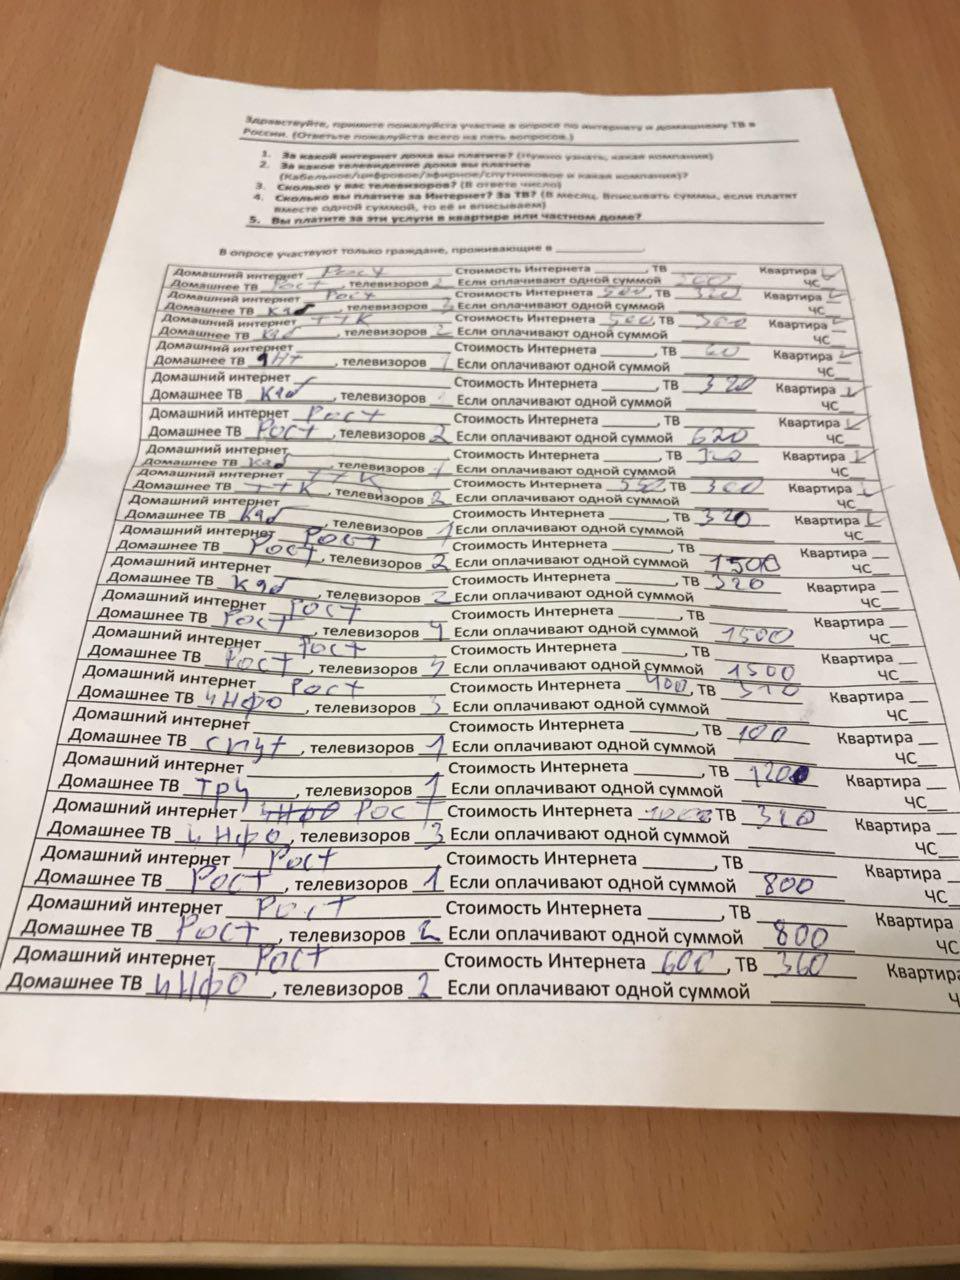 Здравствуйте, примите пожалуйста участие в опросе по интернету и домашнему ТВ в
России. (Ответьте пожалуйста всего на пять вопросов.)
1. За какой интернет дома вы платите? (Нужно узнать, какая компания)
2. За какое телевидение дома вы платите
(Кабельное/цифровое/эфирное/спутниковое и какая компания)?
3. Сколько у вас телевизоров? (В ответе число)
4. Сколько вы платите за Интернет? За ТВ? (В месяц. Вписывать суммы, если платят
вместе одной суммой, то её и вписываем)
5. Вы платите за эти услуги в квартире или частном доме?
В опросе участвуют только граждане, проживающие в
Домашний интернет Рост Стоимость Интернета , ТВ Квартира
Домашнее ТВ Рост , телевизоров 2 Если оплачивают одной суммой ЧС
Домашний интернет Рост Стоимость Интернета 500, ТВ 320 Квартира
Домашнее ТВ Каб , телевизоров Если оплачивают одной суммой ЧС
Домашний интернет ТТК Стоимость Интернета 500, ТВ 300 Квартира
Домашнее ТВ Каб , телевизоров 2 Если оплачивают одной суммой ЧС
Домашний интернет Стоимость Интернета , ТВ 60 Квартира
Домашнее ТВ , телевизоров 1 Если оплачивают одной суммой ЧС
Домашний интернет Стоимость Интернета , ТВ 320 Квартира
Домашнее ТВ Каб , телевизоров Если оплачивают одной суммой ЧС
Домашний интернет Рост Стоимость Интернета , ТВ Квартира
Домашнее ТВ Рост , телевизоров 2 Если оплачивают одной суммой 620 ЧС
Домашний интернет Стоимость Интернета , ТВ 320 Квартира
Домашнее ТВ Каб , телевизоров 1 Если оплачивают одной суммой ЧС
Домашний интернет ТТК Стоимость Интернета , ТВ 300 Квартира
Домашнее ТВ ТТК , телевизоров 2 Если оплачивают одной суммой ЧС
Домашний интернет Стоимость Интернета , ТВ 320 Квартира
Домашнее ТВ Каб , телевизоров 1 Если оплачивают одной суммой ЧС
Домашний интернет Рост Стоимость Интернета , ТВ Квартира
Домашнее ТВ Рост , телевизоров 2 Если оплачивают одной суммой 1500 ЧС
Домашний интернет Стоимость Интернета , ТВ 320 Квартира
Домашнее ТВ Каб , телевизоров 2 Если оплачивают одной суммой ЧС
Домашний интернет Рост Стоимость Интернета , ТВ Квартира
Домашнее ТВ Рост , телевизоров 4 Если оплачивают одной суммой 1500 ЧС
Домашний интернет Рост Стоимость Интернета , ТВ Квартира
Домашнее ТВ Рост , телевизоров Если оплачивают одной суммой 1500 ЧС
Домашний интернет Рост Стоимость Интернета 400, ТВ 310 Квартира
Домашнее ТВ Инфо , телевизоров 3 Если оплачивают одной суммой ЧС
Домашний интернет Стоимость Интернета , ТВ 100 Квартира
Домашнее ТВ Спут , телевизоров 1 Если оплачивают одной суммой ЧС
Домашний интернет Стоимость Интернета , ТВ 1200 Квартира
Домашнее ТВ Три , телевизоров 1 Если оплачивают одной суммой ЧС
Домашний интернет Рост Стоимость Интернета 1000 ТВ 320 Квартира
Домашнее ТВ Инфо, телевизоров 3 Если оплачивают одной суммой ЧС
Домашний интернет Рост Стоимость Интернета , ТВ Квартира
Домашнее ТВ Рост , телевизоров 1 Если оплачивают одной суммой 800 ЧС
Домашний интернет Рост Стоимость Интернета , ТВ Квартира
Домашнее ТВ Рост , телевизоров 2 Если оплачивают одной суммой 800 ЧС
Домашний интернет Рост Стоимость Интернета 600, ТВ 360 Квартира
Домашнее ТВ Инфо , телевизоров 2 Если оплачивают одной суммой ЧС